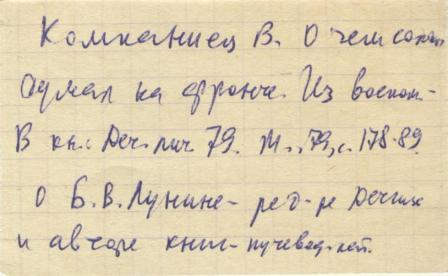 Компаниец В. О чем солдат
думал на фронте. Из воспом.-
В кн.: Деч. лит 79. М., 79, с. 178-89
О Б. В. Лунине - ред-ре Дечгиз
и авторе книг-путевод-лей.